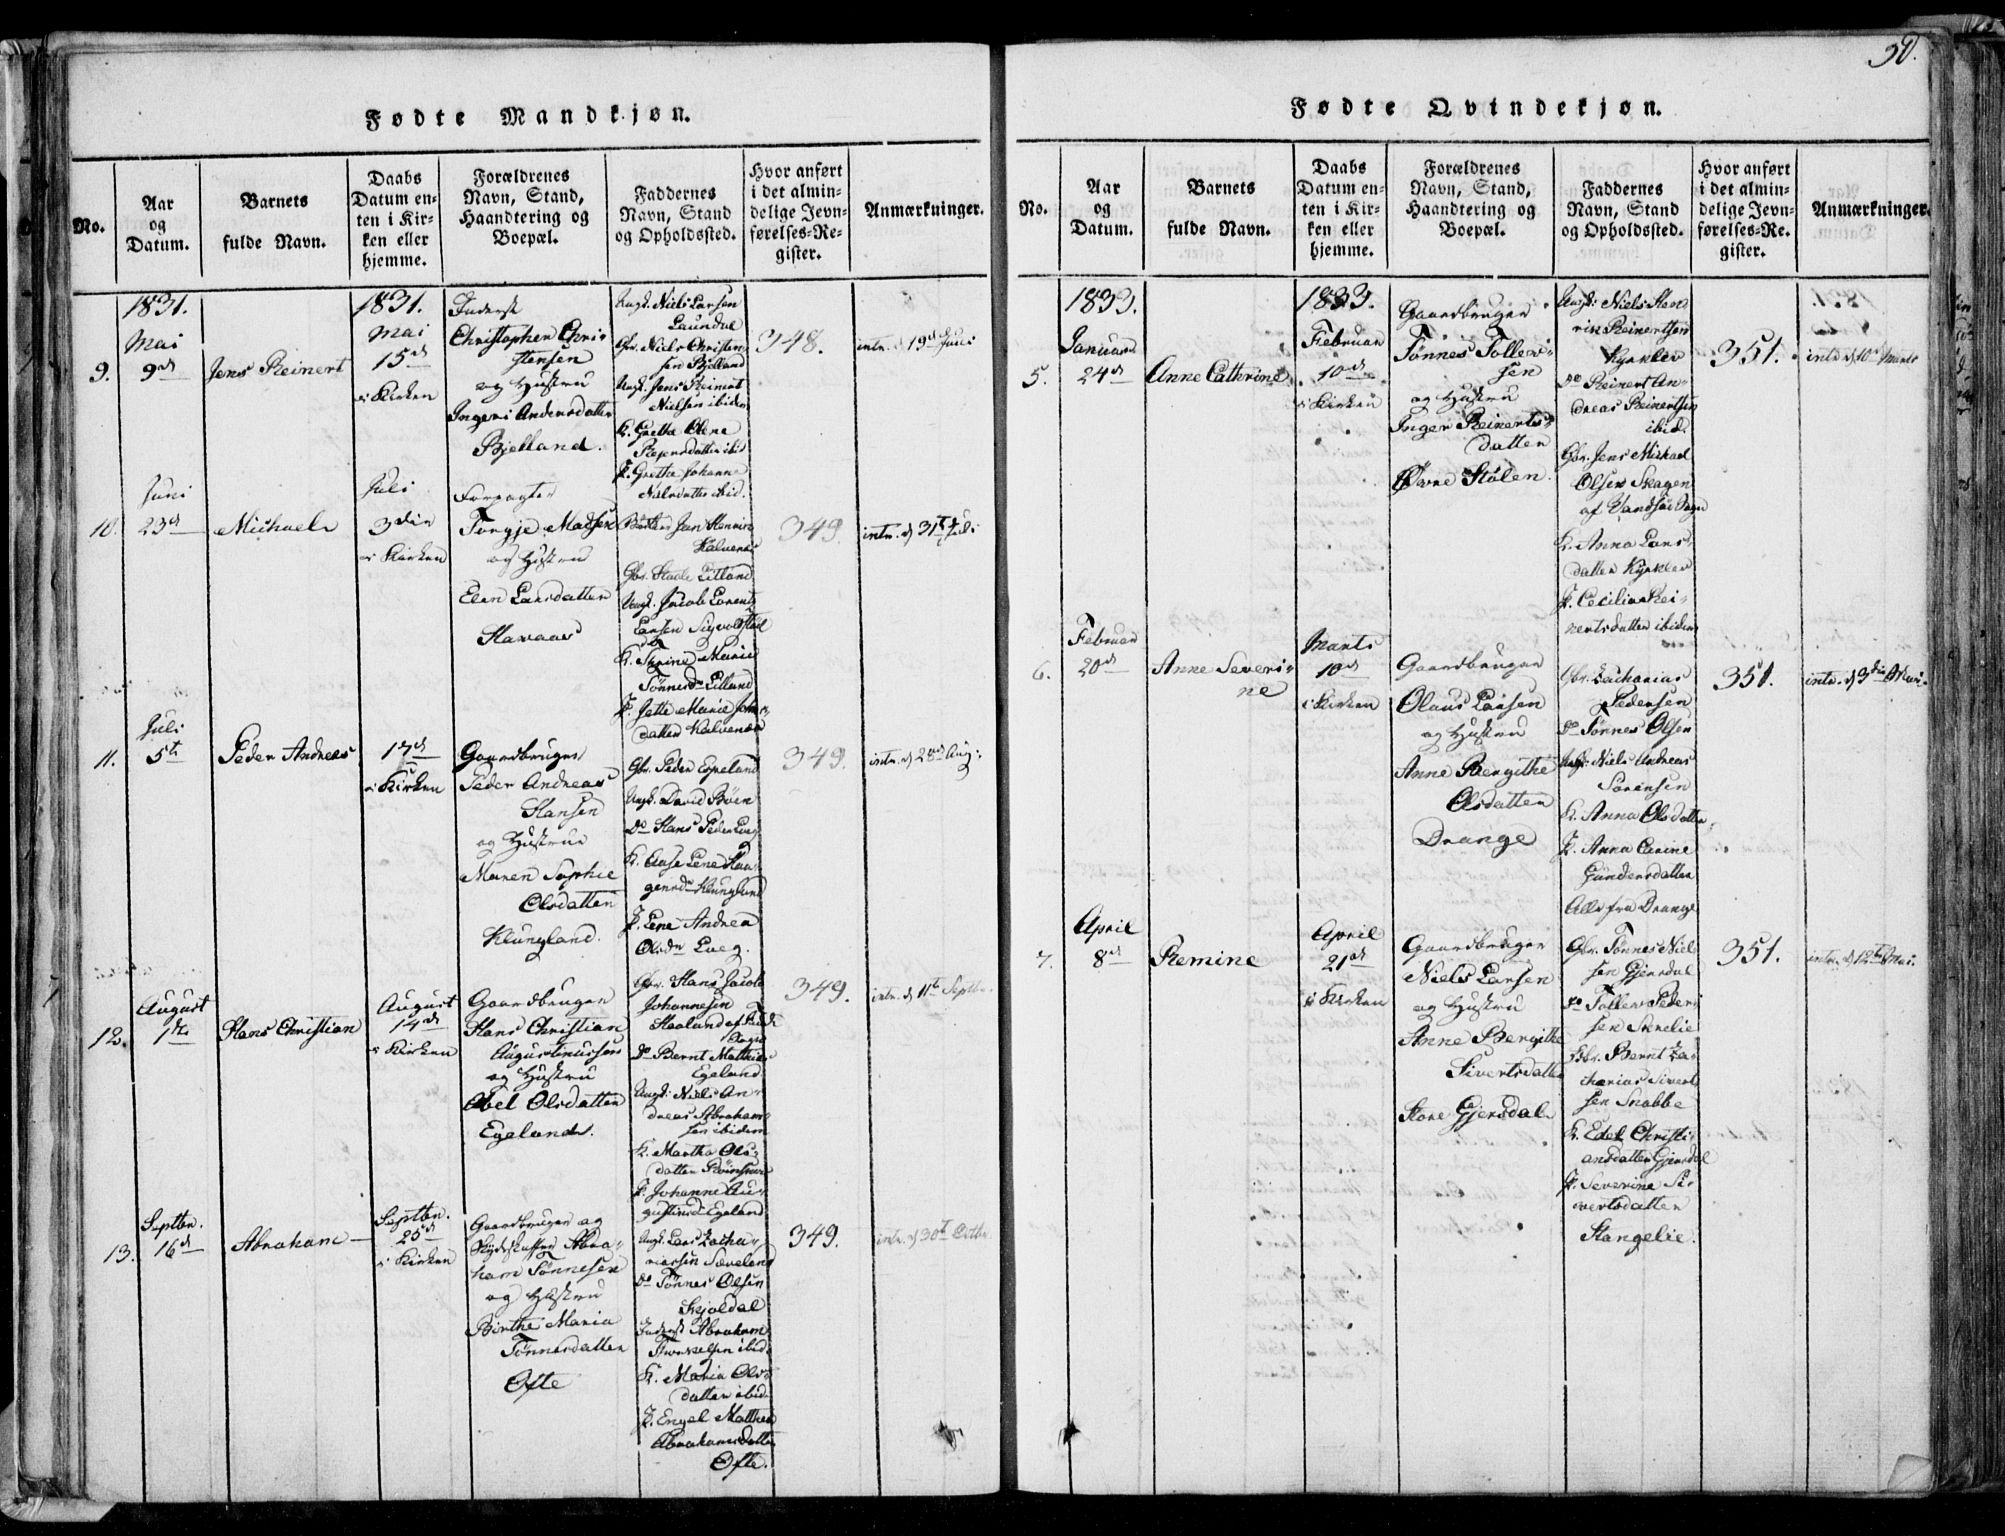 50.
Fødte Mandkjøn.
No.
Aar
og
Datum.
Barnets
fulde Navn.
Daabs
Datum en-
ten i Kir-
ken eller
hjemme.
Forældrenes
Navn, Stand,
Haandtering og
Boepæl.
Faddernes
Navn, Stand
og Opholdssted.
Hvor anført
i det almin-
delige Jevn-
førelses-Re-
gister.
Anmærkninger.
9.
1831.
Mai
9de
Jens Reinert
1831.
Mai
15de
i Kirken
Inderst
Christopher Chri-
stensen
og Hustru
Inger Andersdatter
Bjelland.
Ungk. Niels Larsen
Gbr. Niels Christen-
sen Bjelland
Ungk. Jens Reinert
Nielsen ibidem
K. Grethe Olene
P. Grethe Johanne
Nielsdatter ibid.
348.
intr. d. 19de Juni
10.
Juni
23de
Michael
Juli
3die
i Kirken
Forpagter
Torgje Madsen
og Hustru
Elen Larsdatter
Havaas
Kalvenes
Gbr. Lilland
Ungk. Jacob Lorents
Larsen Sigvoldstad
K. Trine Marie
Tønnesdr Lilland
P. Jette Marie
datter Kalvenes
349.
intr. d. 31te Juli
11.
Juli
5te
Peder Andreas
17de
i Kirken
Gaardbruger
Peder Andreas
Hansen
og Hustru
Maren Sophie
Olsdatter
Klungland.
Gbr. Peder Egeland
Ungk. David Bøen
Do Hans Peder Lueg
K. Aase Lene Haa-
gensdr Klungland
P. Lene Andrea
Olsdr Lueg.
349.
intr. d. 28de Aug:
12.
August
1ste
Hans Christian
August
14de
i Kirken
Gaardbruger
Hans Christian
Augustinussen
og Hustru
Abel Olsdatter
Egeland.
Gbr. Hans Jacob
Johannesen
Do Bernt Mathias
Egeland
Ungk. Niels An-
dreas Abraham-
sen ibidem
K. Martha Ols-
datter
P. Johanne Au-
gustinusd. Egeland
349.
intr. d. 11te Septbr.
13.
Septbr.
16de
Abraham
Septbr.
25de
i Kirken
Gaardbruger og
Skydsskaffer Abra-
ham Tønnesen
og Hustru
Birthe Maria
Tønnesdatter
Ofte
Ungk. Lars Zacha-
riassen Sæveland
Do Tønnes Olsen
Skjoldal
Inderst Abraham
ibid.
K. Maria Ols-
datter ibid.
P. Engel Mathea
Abrahamsdatter
Ofte.
349.
intr. d. 30te Octbr.
Fødte Qvindekjøn.
No.
Aar
og
Datum.
Barnets
fulde Navn.
Daabs
Datum en-
ten i Kir-
ken eller
hjemme.
Forældrenes
Navn, Stand,
Haandtering og
Boepæl.
Faddernes
Navn, Stand
og Opholdssted.
Hvor anført
i det almin-
delige Jevn-
førelses-Re-
gister.
Anmærkninger.
5.
1833.
Januar
24de
Anne Cathrine
1833.
Februar
10de
i Kirken
Gaardbruger
Tønnes Tollev-
sen
og Hustru
Inger Reinerts-
datter
Øvre Stølen.
Ungk: Niels Hen-
rik Reinertsen
Kjrklev
Do Reinert An-
dreas Reinertsen
ibid.
Gbr. Jens Michael
Olsen Skagen
af Vandsøe Sogn
K. Anna Lars-
datter Kjrklev
P. Cecilia Rei-
nertsdatter ibidem
351.
intr. d. 10de Marts
6.
Februar
20de
Anne Severi-
ne
Marts
10de
i Kirken
Gaardbruger
Olaus Larsen
og Hustru
Anne Bergithe
Olsdatter
Drange
Gbr. Zacharias
Pedersen
Do Tønnes Olsen
Ungk: Niels Andreas
Sørensen
K. Anna Olsdatter
P. Anna Carine
Gundersdatter
Alle fra Drange
351.
intr. d. 3die Mai.
7.
April
8de
Remine
April
21de
i Kirken
Gaardbruger
Niels Larsen
og Hustru
Anne Bergithe
Sivertsdatter
Store Gjersdal
Gbr. Tønnes Niel-
sen Gjersdal
Do Tollev Peder-
sen
Gbr. Bernt Za-
charias Sivert-
sen Snabbe
K. Edel Christi-
ansdatter Gjersdal
P. Severine Si-
vertsdatter
Stangelie.
351.
intr. d. 12te Mai.